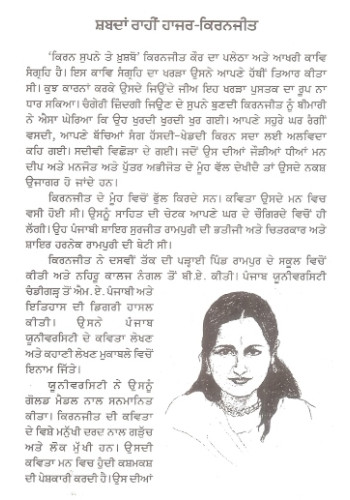 ਸ਼ਬਦਾਂ ਰਾਹੀਂ ਹਾਜਰ-ਕਿਰਨਜੀਤ
'ਕਿਰਨ ਸੁਪਨੇ ਤੇ ਖ਼ੁਸ਼ਬੋ' ਕਿਰਨਜੀਤ ਕੌਰ ਦਾ ਪਲੇਠਾ ਅਤੇ ਆਖਰੀ ਕਾਵਿ
ਸੰਗ੍ਰਹਿ ਹੈ। ਇਸ ਕਾਵਿ ਸੰਗ੍ਰਹਿ ਦਾ ਖਰੜਾ ਉਸਨੇ ਆਪਣੇ ਹੱਥੀਂ ਤਿਆਰ ਕੀਤਾ
ਸੀ। ਕੁਝ ਕਾਰਨਾਂ ਕਰਕੇ ਉਸਦੇ ਜਿਉਂਦੇ ਜੀਅ ਇਹ ਖਰੜਾ ਪੁਸਤਕ ਦਾ ਰੂਪ ਨਾ
ਧਾਰ ਸਕਿਆ। ਚੰਗੇਰੀ ਜ਼ਿੰਦਗੀ ਜਿਉਣ ਦੇ ਸੁਪਨੇ ਬੁਣਦੀ ਕਿਰਨਜੀਤ ਨੂੰ ਬੀਮਾਰੀ
ਨੇ ਐਸਾ ਘੇਰਿਆ ਕਿ ਉਹ ਖੁਰਦੀ ਖੁਰਦੀ ਖੁਰ ਗਈ। ਆਪਣੇ ਸਹੁਰੇ ਘਰ ਰੰਗੀਂ
ਵਸਦੀ, ਆਪਣੇ ਬੱਚਿਆਂ ਸੰਗ ਹੱਸਦੀ-ਖੇਡਦੀ ਕਿਰਨ ਸਦਾ ਲਈ ਅਲਵਿਦਾ
ਕਹਿ ਗਈ। ਸਦੀਵੀ ਵਿਛੋੜਾ ਦੇ ਗਈ। ਜਦੋਂ ਉਸ ਦੀਆਂ ਜੌੜੀਆਂ ਧੀਆਂ ਮਨ
ਦੀਪ ਅਤੇ ਮਨਜੋਤ ਅਤੇ ਪੁੱਤਰ ਅਭੀਜੋਤ ਦੇ ਮੂੰਹ ਵੱਲ ਦੇਖੀਦੈ ਤਾਂ ਉਸਦੇ ਨਕਸ਼
ਉਜਾਗਰ ਹੋ ਜਾਂਦੇ ਹਨ।
ਕਿਰਨਜੀਤ ਦੇ ਮੂੰਹ ਵਿਚੋਂ ਫੁੱਲ ਕਿਰਦੇ ਸਨ। ਕਵਿਤਾ ਉਸਦੇ ਮਨ ਵਿਚ
ਵਸੀ ਹੋਈ ਸੀ। ਉਸਨੂੰ ਸਾਹਿਤ ਦੀ ਚੇਟਕ ਆਪਣੇ ਘਰ ਦੇ ਚੌਗਿਰਦੇ ਵਿਚੋਂ ਹੀ
ਲੱਗੀ। ਉਹ ਪੰਜਾਬੀ ਸ਼ਾਇਰ ਸੁਰਜੀਤ ਰਾਮਪੁਰੀ ਦੀ ਭਤੀਜੀ ਅਤੇ ਚਿਤਰਕਾਰ ਅਤੇ
ਸ਼ਾਇਰ ਹਰਨੇਕ ਰਾਮਪੁਰੀ ਦੀ ਬੇਟੀ ਸੀ।
ਕਿਰਨਜੀਤ ਨੇ ਦਸਵੀਂ ਤੱਕ ਦੀ ਪੜ੍ਹਾਈ ਪਿੰਡ ਰਾਮਪੁਰ ਦੇ ਸਕੂਲ ਵਿਚੋਂ
ਕੀਤੀ ਅਤੇ ਨਹਿਰੂ ਕਾਲਜ ਨੰਗਲ ਤੋਂ ਬੀ.ਏ. ਕੀਤੀ। ਪੰਜਾਬ ਯੂਨੀਵਰਸਿਟੀ
ਚੰਡੀਗੜ੍ਹ ਤੋਂ ਐਮ.ਏ. ਪੰਜਾਬੀ ਅਤੇ
ਇਤਿਹਾਸ ਦੀ ਡਿਗਰੀ ਹਾਸਲ
ਕੀਤੀ। ਉਸਨੇ ਪੰਜਾਬ
ਯੂਨੀਵਰਸਿਟੀ ਦੇ ਕਵਿਤਾ ਲੇਖਣ
ਅਤੇ ਕਹਾਣੀ ਲੇਖਣ ਮੁਕਾਬਲੇ ਵਿਚੋਂ
ਇਨਾਮ ਜਿੱਤੇ।
ਯੂਨੀਵਰਸਿਟੀ ਨੇ ਉਸਨੂੰ
ਗੋਲਡ ਮੈਡਲ ਨਾਲ ਸਨਮਾਨਿਤ
ਕੀਤਾ। ਕਿਰਨਜੀਤ ਦੀ ਕਵਿਤਾ
ਦੇ ਵਿਸ਼ੇ ਮਨੁੱਖੀ ਦਰਦ ਨਾਲ ਗੜੁੱਚ
ਅਤੇ ਲੋਕ ਮੁੱਖੀ ਹਨ। ਉਸਦੀ
ਕਵਿਤਾ ਮਨ ਵਿਚ ਹੁੰਦੀ ਕਸ਼ਮਕਸ਼
ਦੀ ਪੇਸ਼ਕਾਰੀ ਕਰਦੀ ਹੈ। ਉਸ ਦੀਆਂ